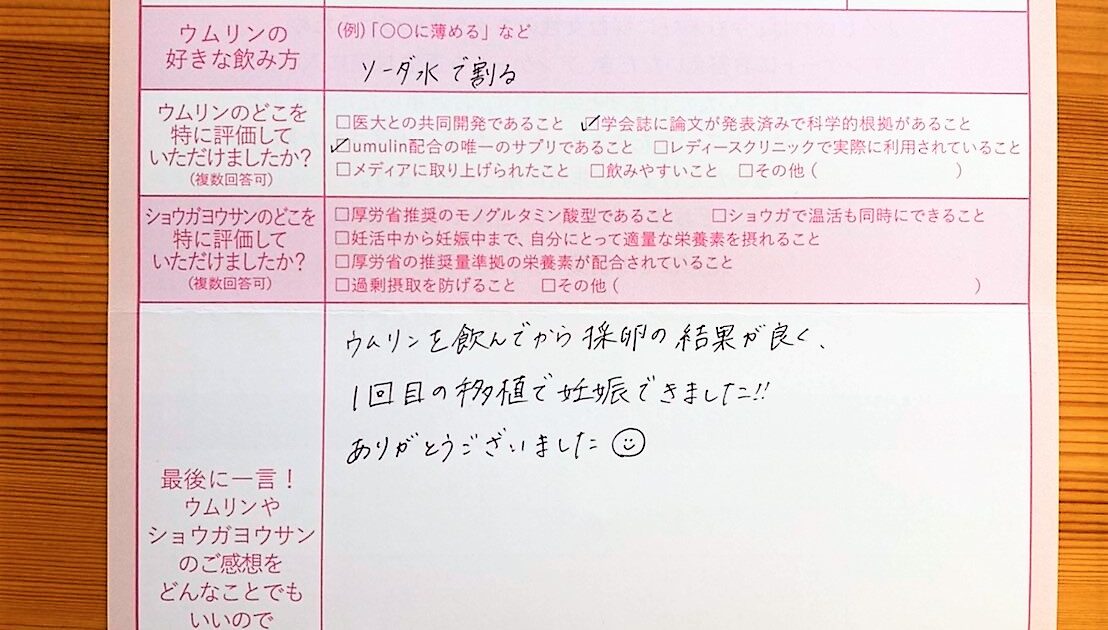 ウムリンの
好きな飲み方
(例)「〇〇に薄める」など
ソーダ水で割る
ウムリンのどこを
特に評価して
いただけましたか?
(複数回答可)
□医大との共同開発であること ☑学会誌に論文が発表済みで科学的根拠があること
☑umulin配合の唯一のサプリであること □レディースクリニックで実際に利用されていること
□メディアに取り上げられたこと □飲みやすいこと □その他( )
ショウガヨウサンのどこを
特に評価して
いただけましたか?
(複数回答可)
□厚労省推奨のモノグルタミン酸型であること □ショウガで温活も同時にできること
□妊活中から妊娠中まで、自分にとって適量な栄養素を摂れること
□厚労省の推奨量準拠の栄養素が配合されていること
□過剰摂取を防げること □その他( )
最後に一言!
ウムリンや
ショウガヨウサン
のご感想を
どんなことでも
いいので
ウムリンを飲んでから採卵の結果が良く、
1回目の移植で妊娠できました!!
ありがとうございました☺